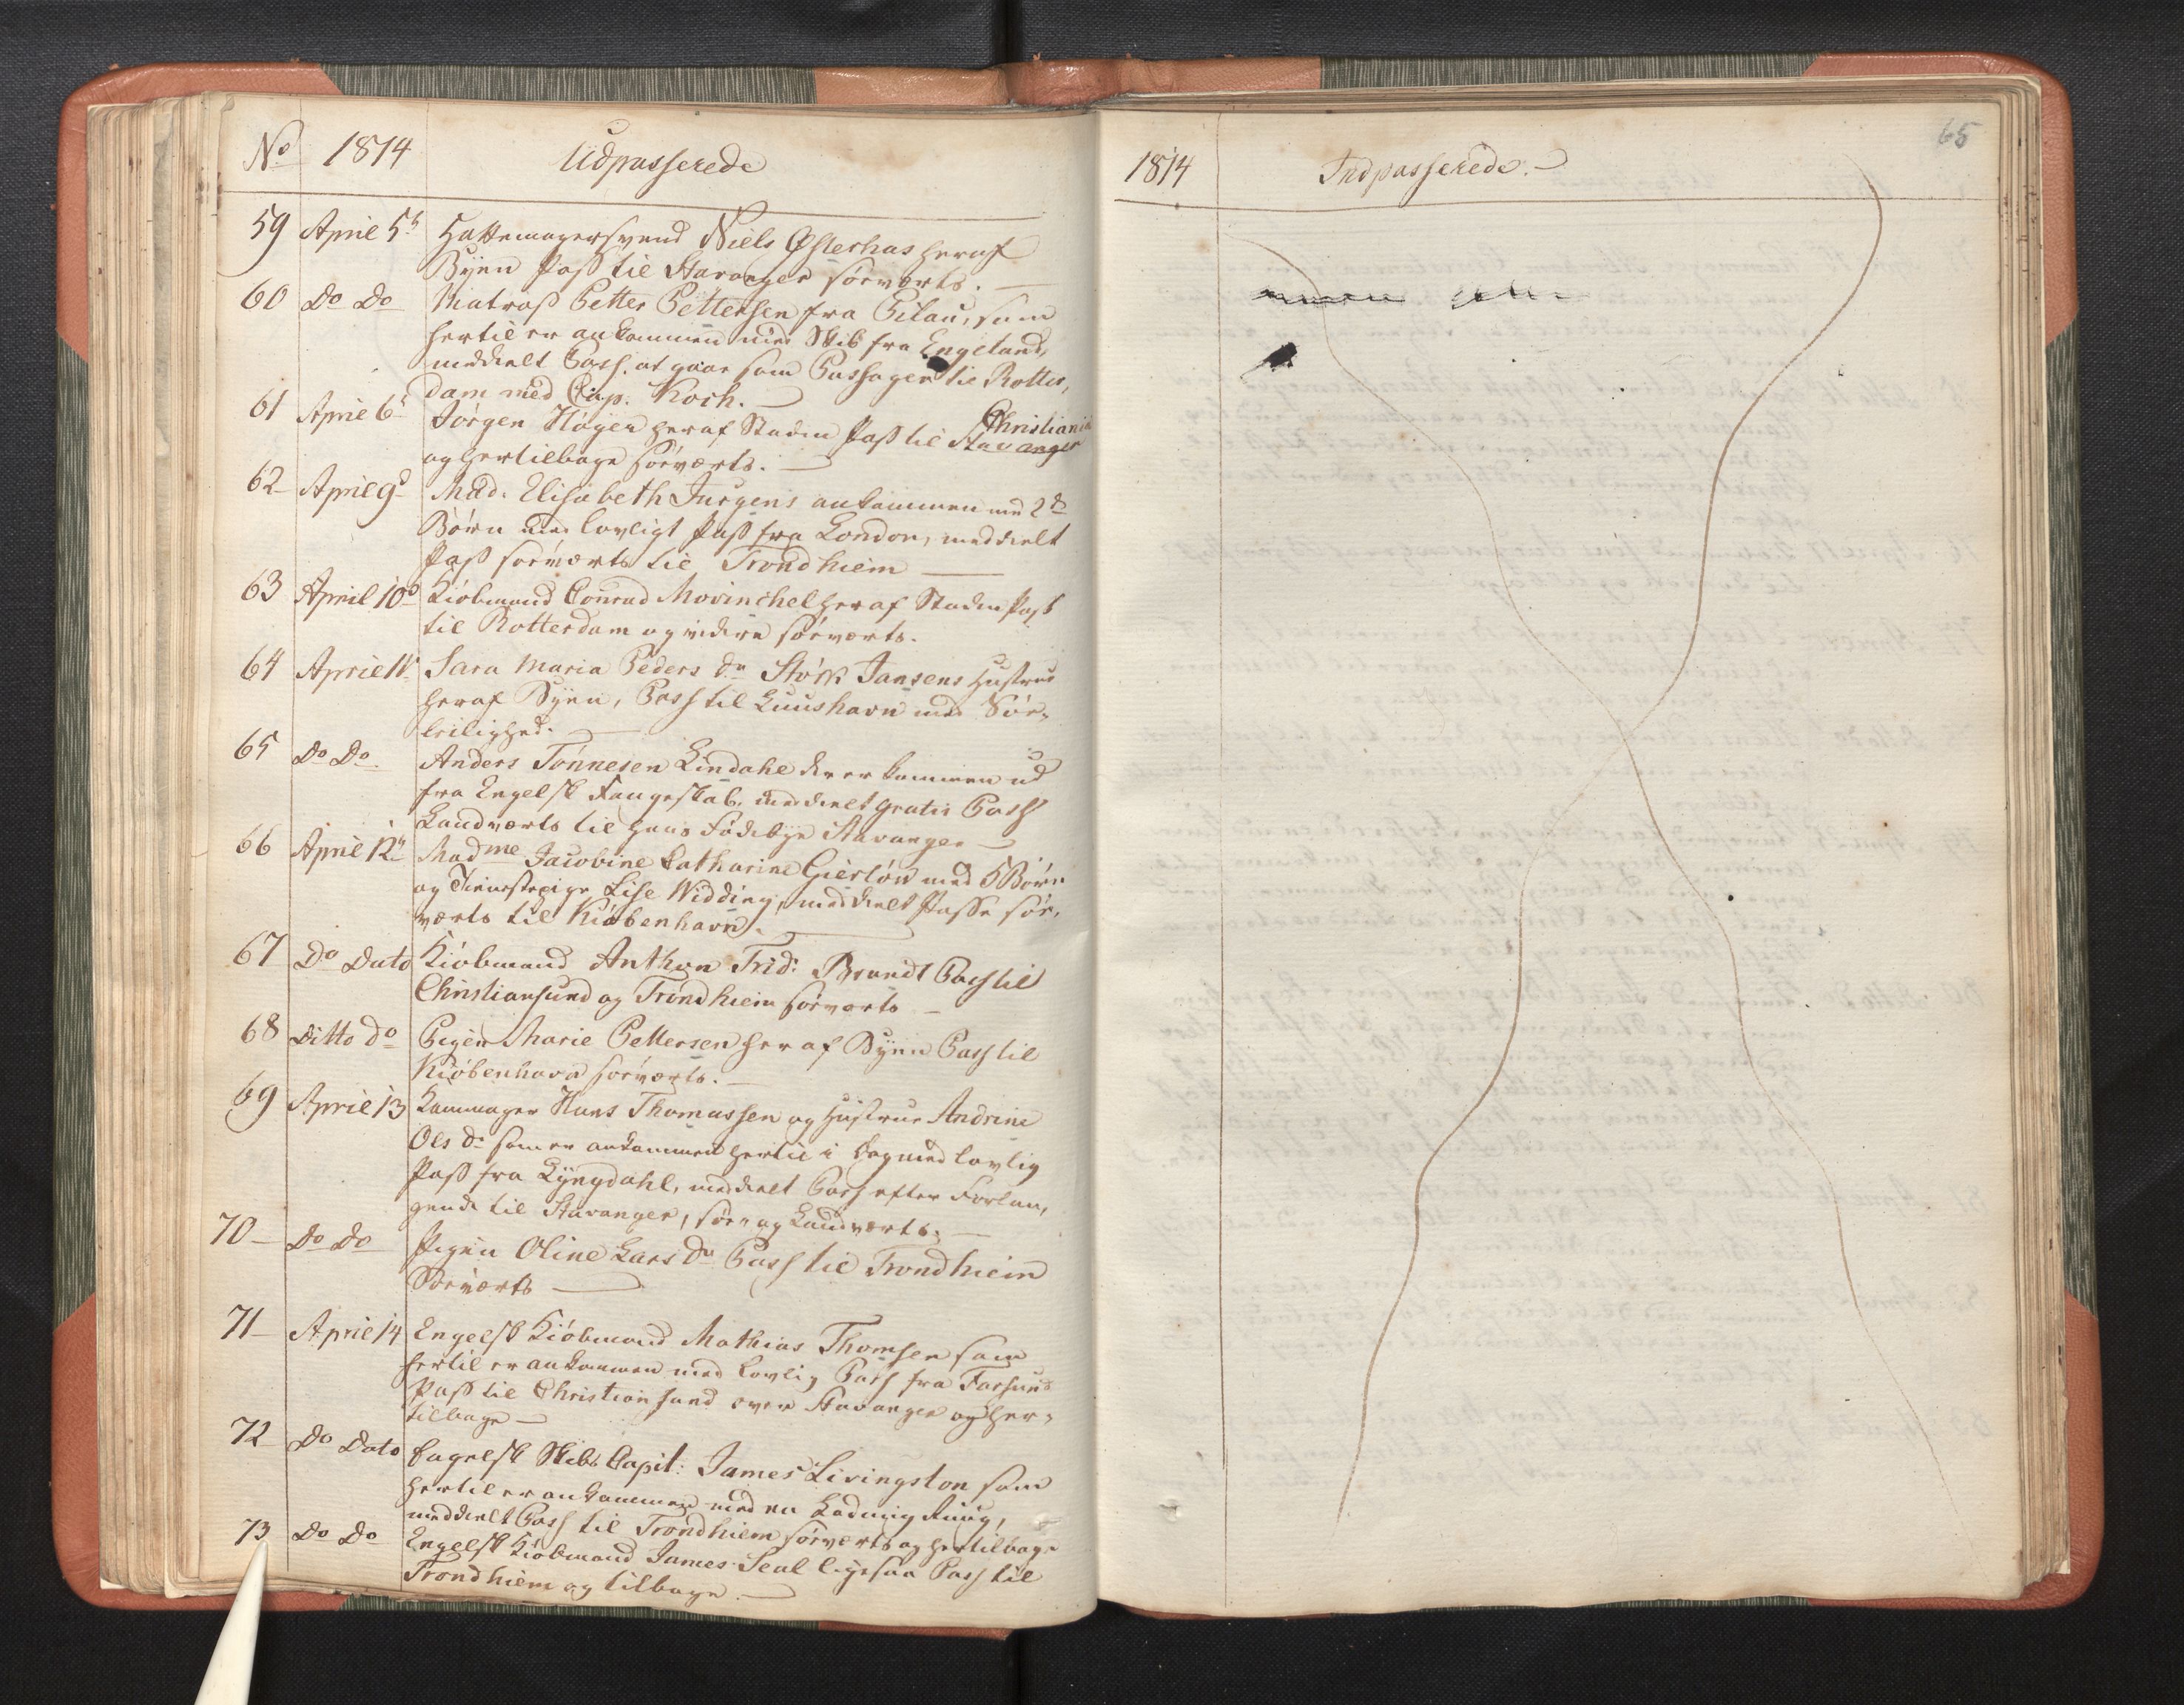 No 1814 Udpasserede
59 April 5t Hattemagersvend Niels Østerhas heraf
Byen Pass til Stavanger søeværts. —
60 Do Do Matros Petter Pettersen fra Pilau, som
hertil er ankommen med Skib fra Engeland,
meddeelt Pass. at gaae som Passager til Rotter,
dam med Cap. Koch. —
61 April 6t Jørgen Høyer heraf Staden Pass til Stavanger Christiania
og hertilbage søeværts. —
62 April 9d Mad. Elisabeth Jurgens ankommen med 2de
Børn med lovligt Pass fra London, meddeelt
Pass søeværts til Trondhiem —
63 April 10d Kiøbmand Conrad Mowinchel heraf Staden Pass
til Rotterdam og videre søeværts.
64 April 11t Sara Maria Peders Dr Størk Jansens Hustrue
heraf Byen, Pass til Luushavn med Søe-
leilighed. —
65 Do Do Anders Tønnesen Lindahl der er kommen ud
fra Engelsk Fangeskab, meddeelt gratis Pass
Landværts til hans Fødebye Stavanger —
66 April 12t Madme Jacobine Catharine Gierløw med 5 Børn
og Tienestepige Lise Widding, meddeelt Passe søe,
værts til Kiøbenhavn. —
67 Do Dato Kiøbmand Anthon Frid: Brandt Pass til
Christiansund og Trondhiem søeværts —
68 Ditto do Pigen Marie Pettersen her af Byen Pass til
Kiøbenhavn søeværts. —
69 April 13 Kammager Hans Thomassen og Hustrue Andrine
Ols Dr som er ankommen hertil i Dag med lovlig
Pass fra Lyngdahl, meddeelt Pass efter Forlan,
gende til Stavanger, søe- og Landværts. —
70 — Do Do Pigen Oline Lars Dr Pass til Trondhiem
Søeværts —
71 — April 14 Engelsk Kiøbmand Mathias Thomsen som
hertil er ankommen med lovlig Pass fra Farsund
Pass til Christiansand over Stavanger og her-
tilbage —
72 Do Dato Engelsk Skibs Capit: James Livingston som
hertil er ankommen med en Ladning
meddeelt Pass til Trondhiem søeværts og hertilbage
73 Do Do Engelsk Kiøbmand James Seal ligesaa Pass til
Trondhiem og tilbage. —
65
1814 Indpasserede. —